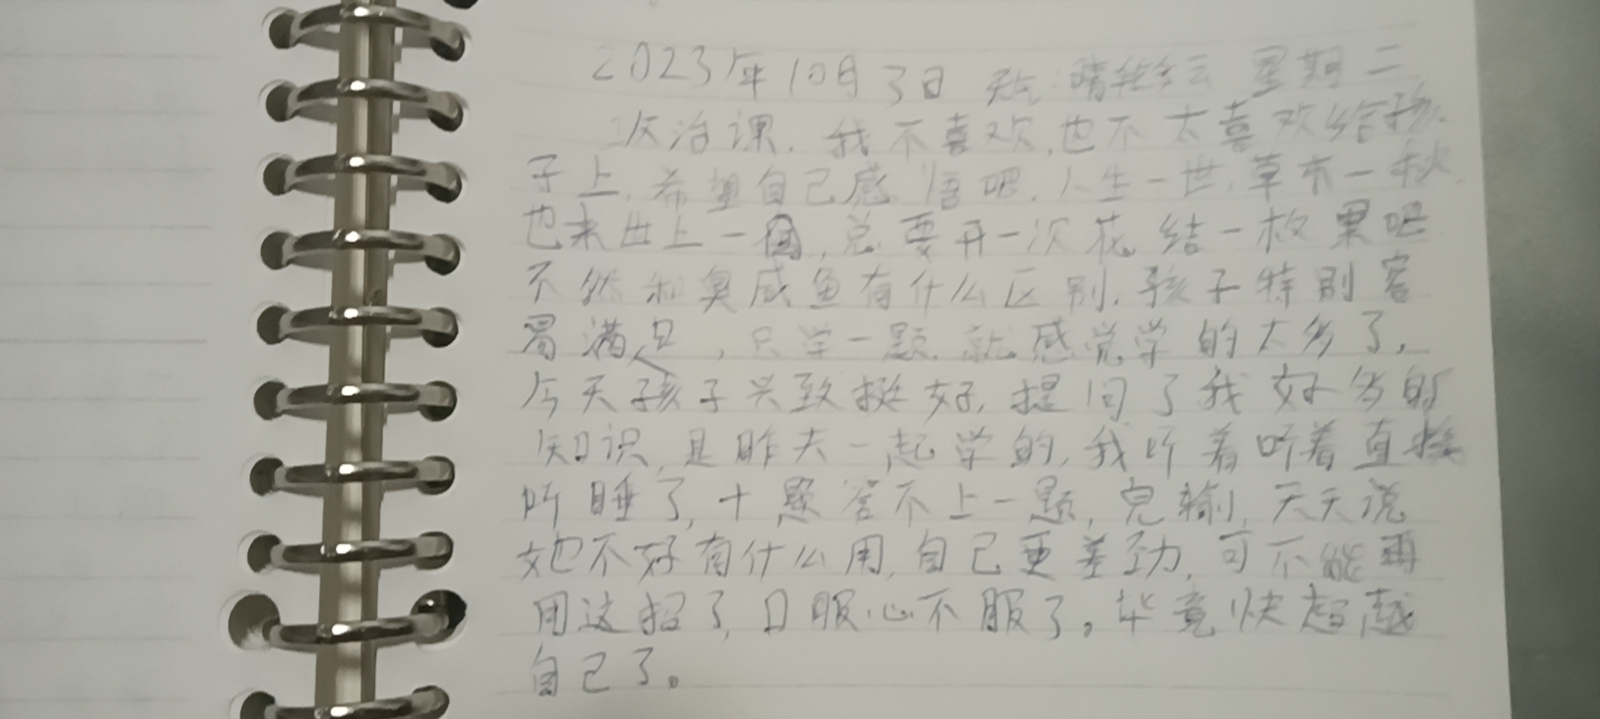 2023年10月3日 天气:晴转多云 星期二
政治课,我不喜欢,也不太喜欢给孩
子上,希望自己感悟吧,人生一世,草木一秋,
也来世上一回,总要开一次花结一枚果吧
不然和臭咸鱼有什么区别,孩子特别容
易满足,只学一题,就感觉学的太多了,
今天孩子兴致挺好,提问了我好多的
知识,是昨天一起学的,我听着听着直接
听睡了,十题答不上一题,完输,天天说
她不好有什么用,自己更差劲,可不能再
用这招了,口服心不服了。毕竟快超越
自己了。